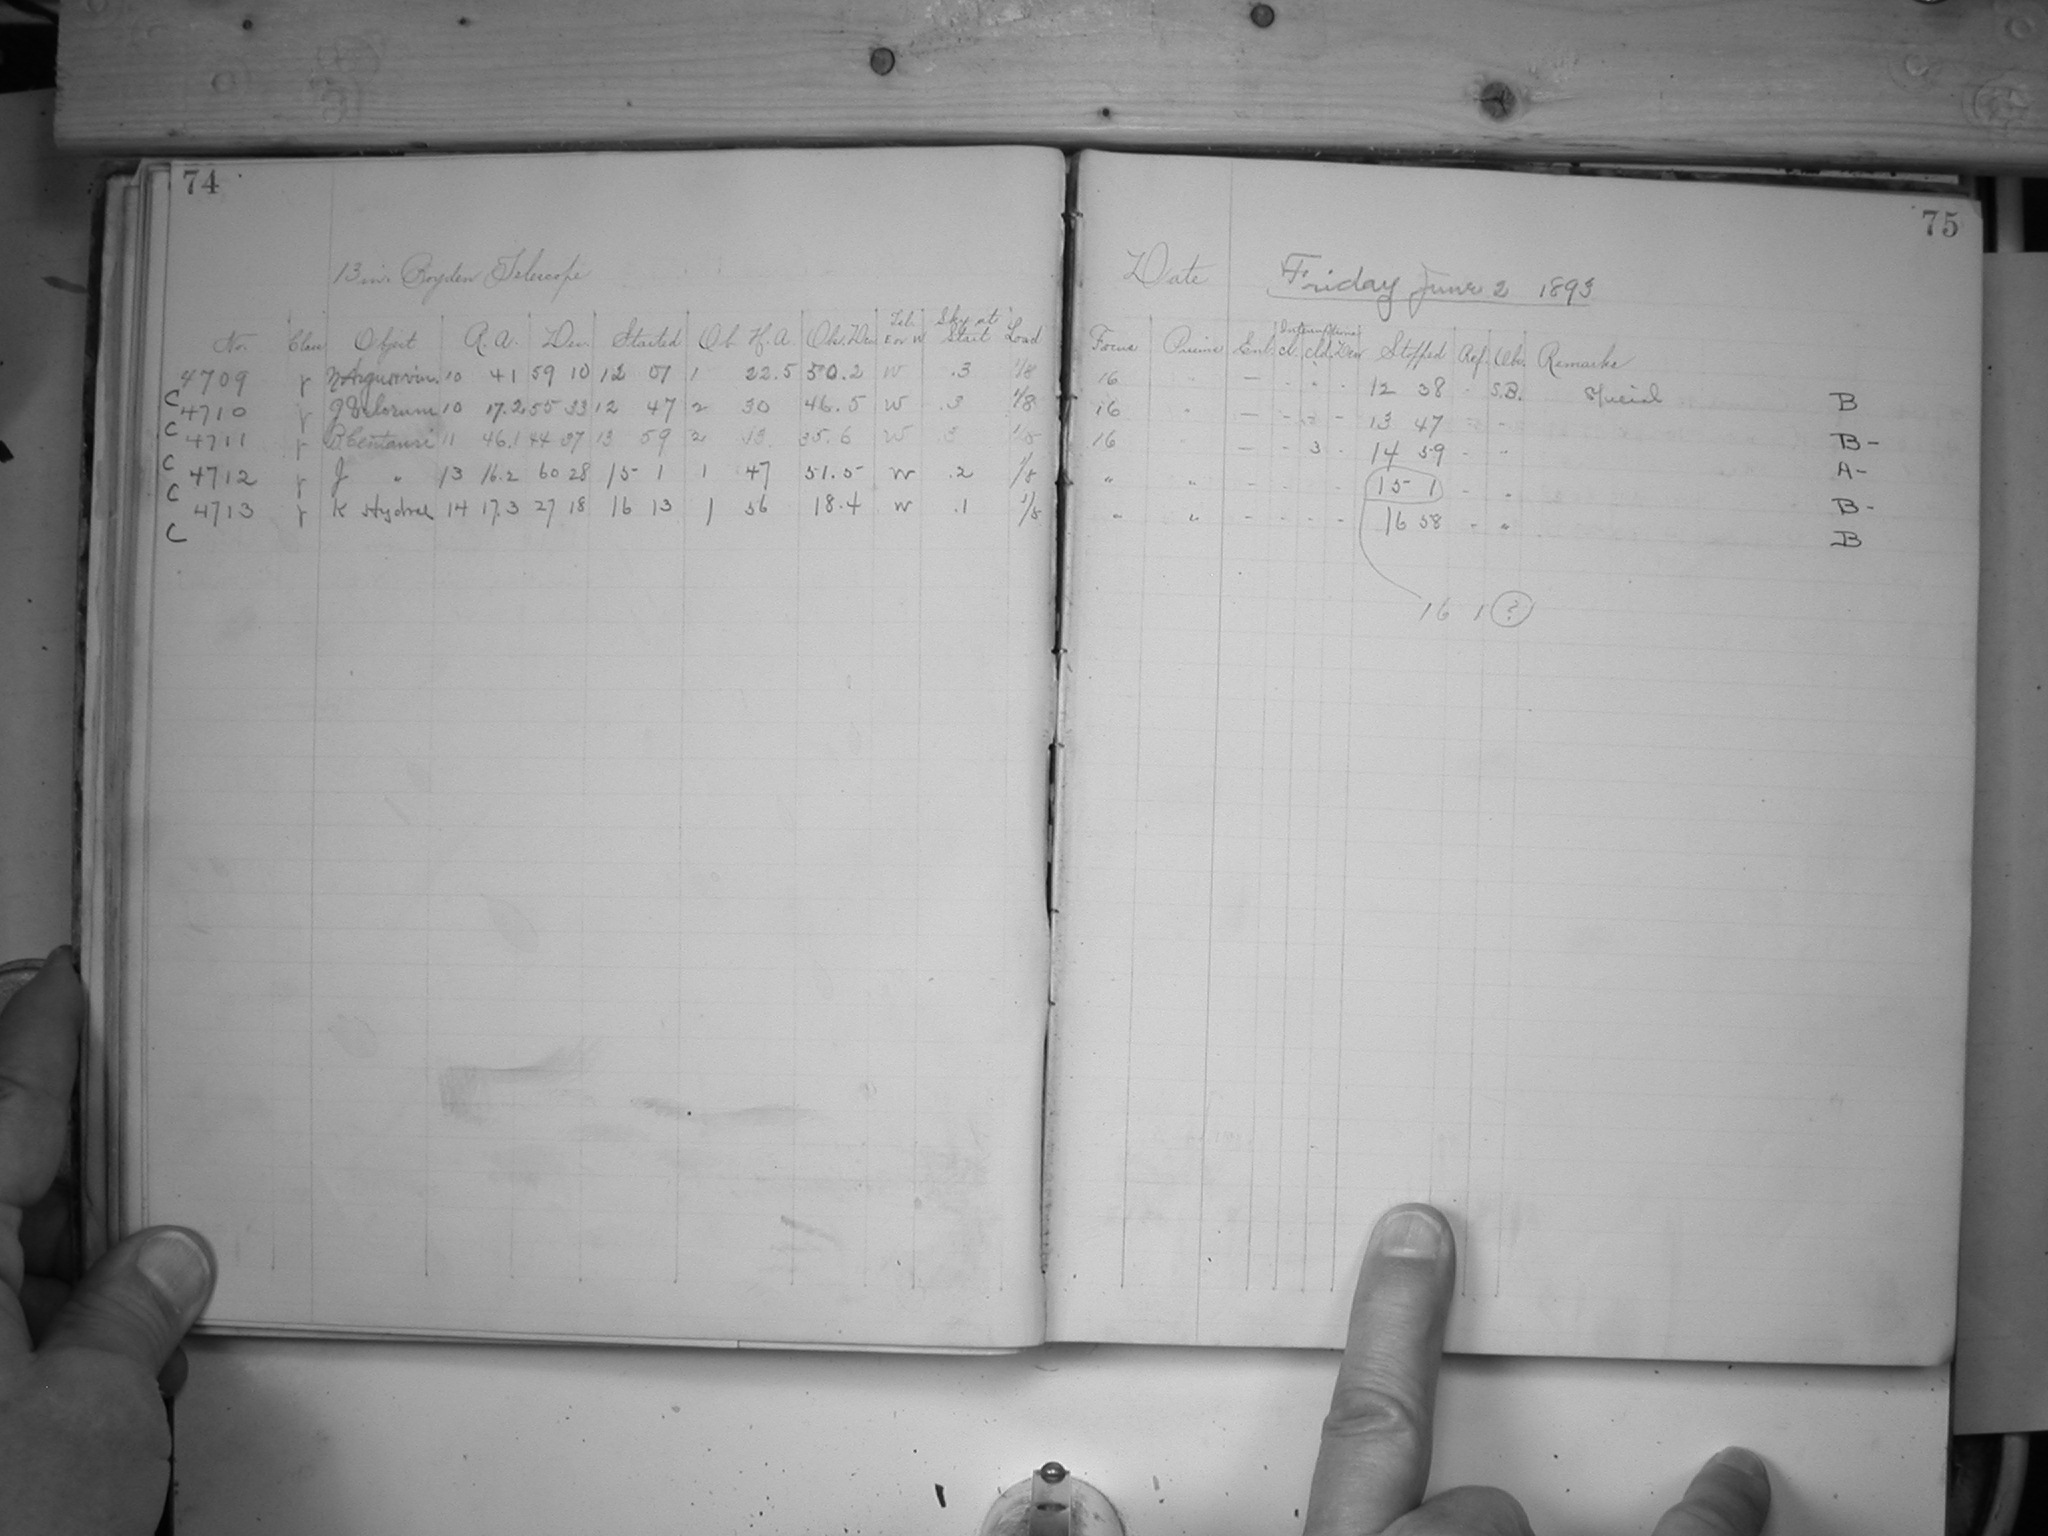 74
13 in. Boyden Telescope
No. Class Object R.A. Dec. Started Ob. H.A. Obs. Dec. Tel. E or W Sky at Start Load
4709 γ 10 41 59 10 12 07 1 22.5 50.2 W .3 1/8
C 4710 γ 10 17.2 55 33 12 47 2 30 46.5 W .3 1/8
C 4711 γ B Centauri 11 46.1 44 37 13 59 2 13. 35.6 W .3 1/8
C 4712 γ J " 13 16.2 60 28 15 1 1 47 51.5 W .2 1/8
C 4713 γ K Hydrae 14 17.3 27 18 16 13 1 56 18.4 W .1 1/8
C
75
Date Friday June 2 1893
Focus Prisms Ent. Interruptions Cl. Cld. Dew Stopped Ref. Obs. Remarks
16 " — - - - 12 38 - S.B. Special B
16 " — - - - 13 47 - " B-
16 — - 3 - 14 59 - " A-
" " - - - - 15 1 - " B-
" " - - - - 16 58 - " B
16 1 ?